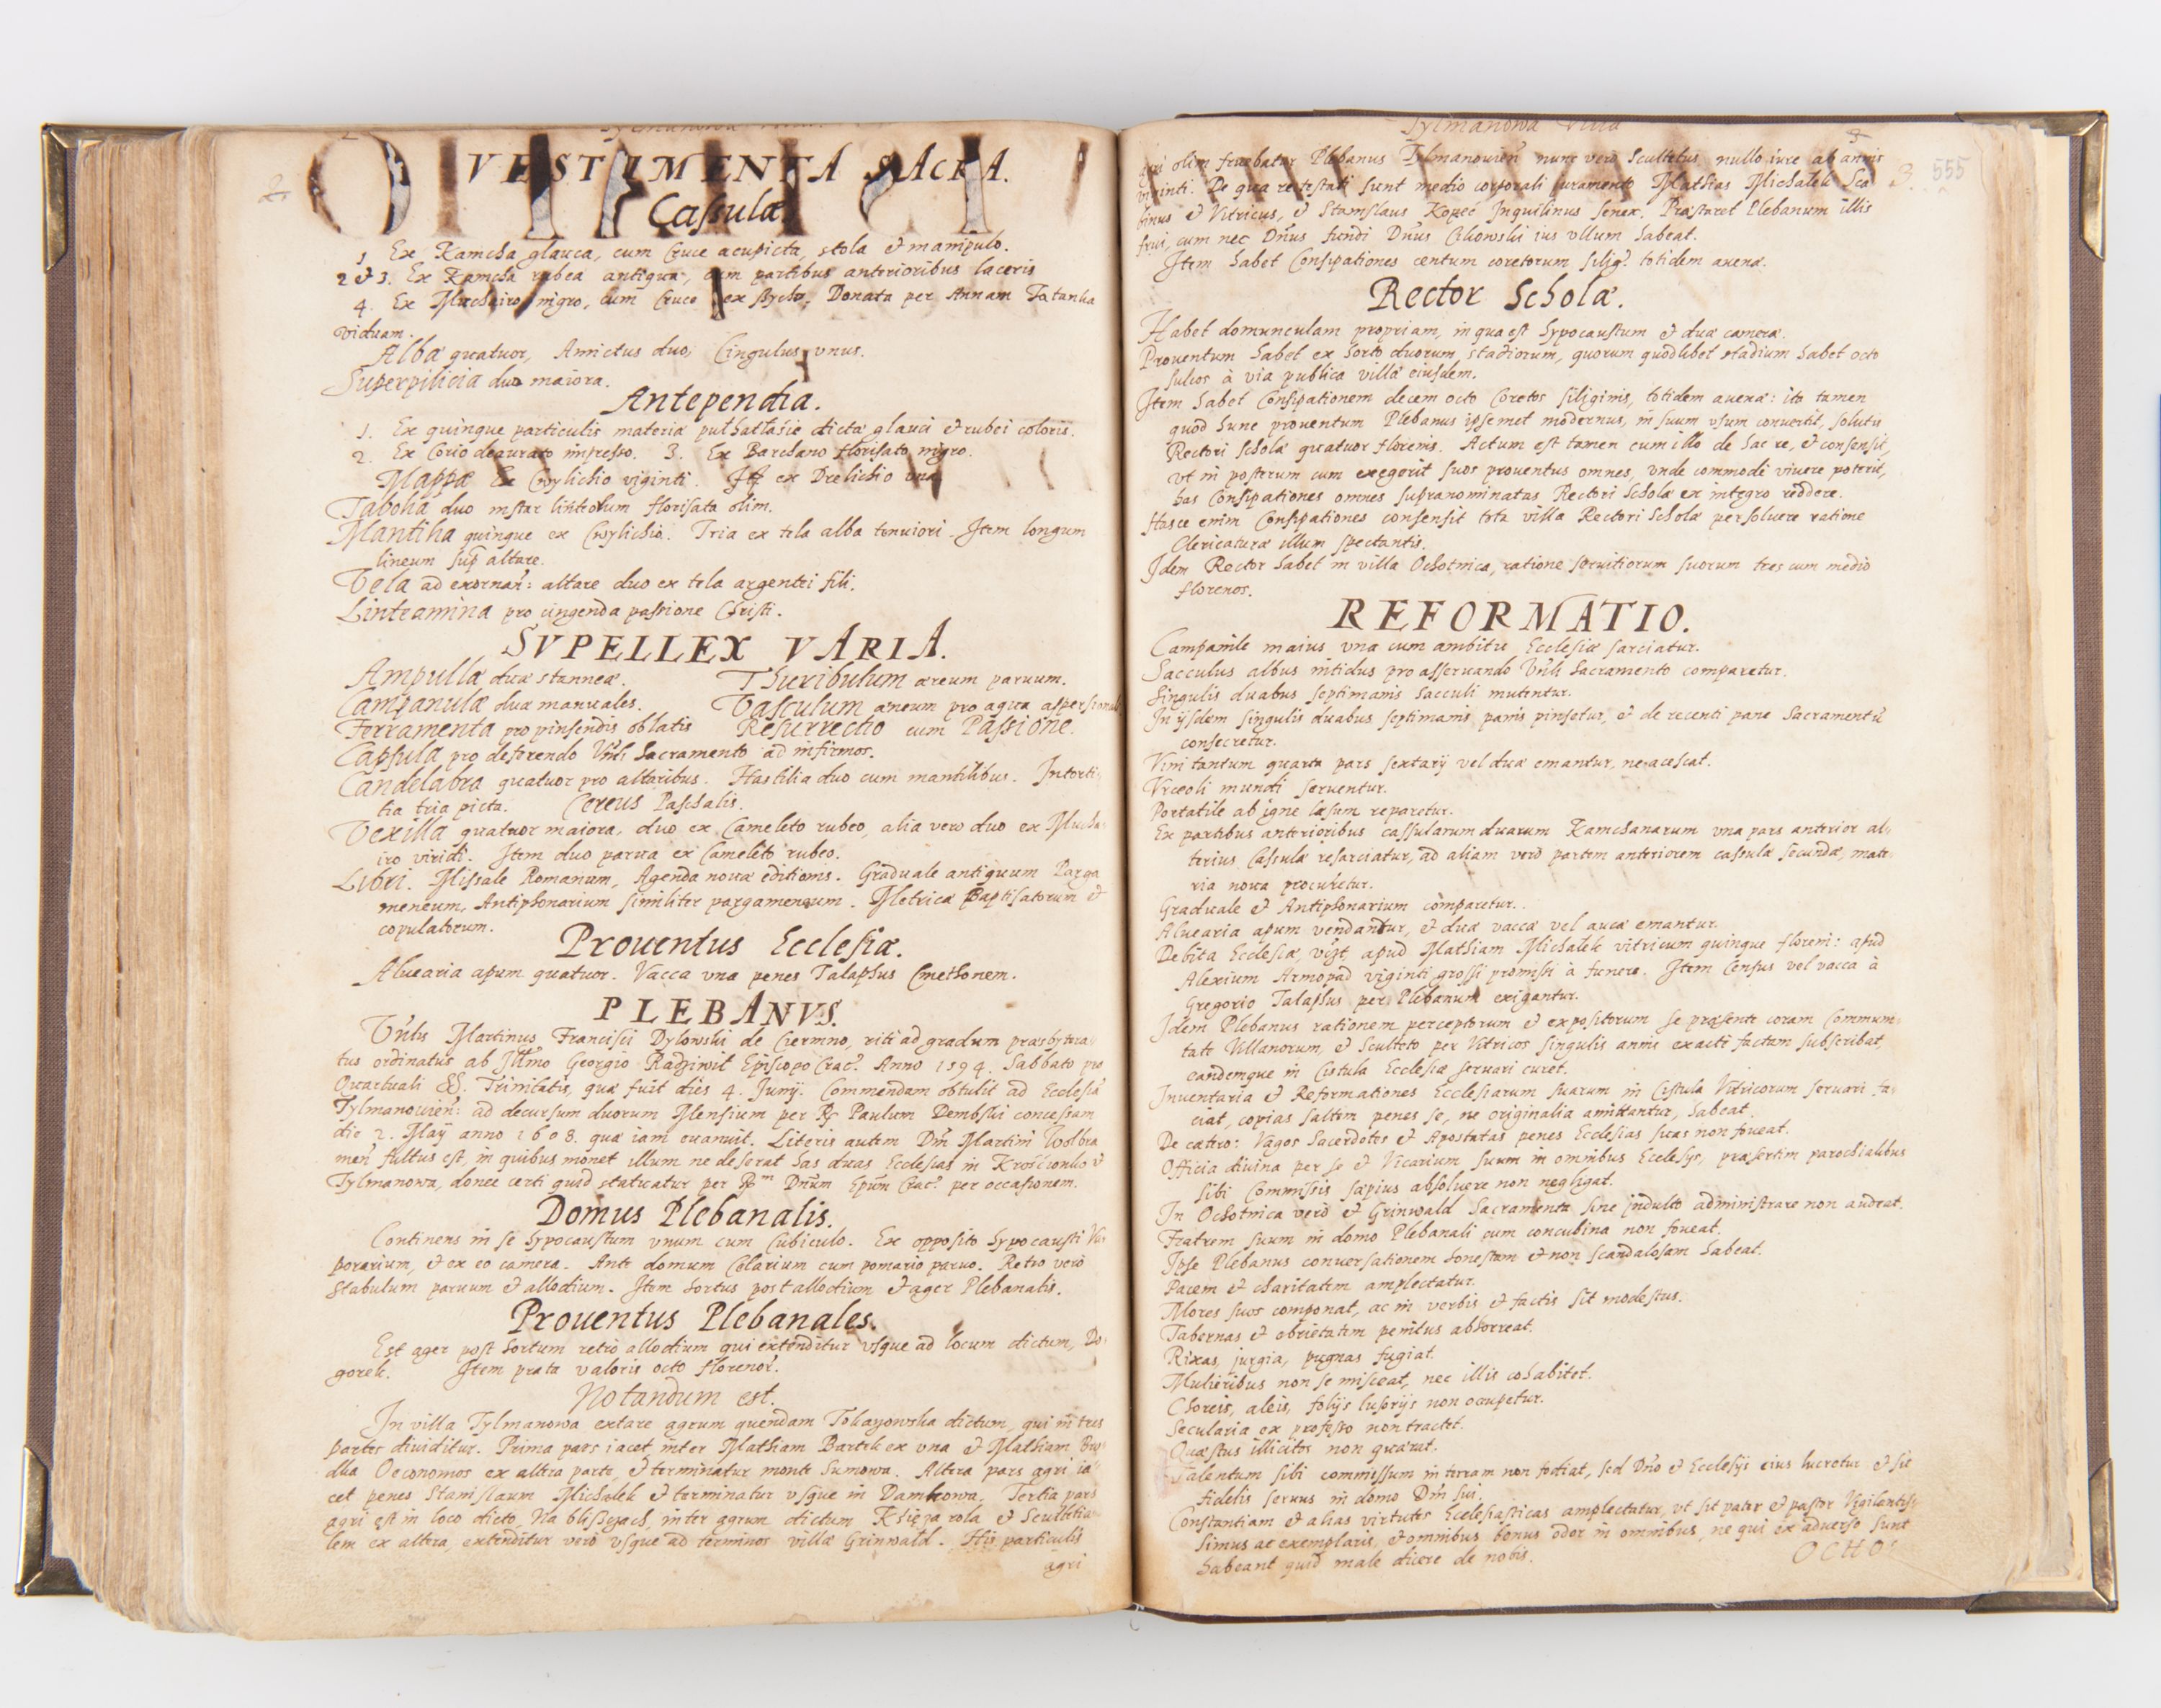 VESTIMENTA SACRA.
Caſsulæ.
1 Ex Kamcha glauca, cum Cruce acupicta, stola & manipulo.
2 & 3. Ex Kamcha rubea antiqua, cum partibus anterioribus laceris
4. Ex Muchairo nigro, cum Cruce ex Donata per Annam Tatanka
viduam.
Albæ quatuor, Amictus duo, Cingulus vnus.
Superpilicia duo maiora.
Antependia.
1. Ex quinque particulis materiæ dictæ glauci & rubei coloris.
2. Ex Corio deaurato impreſso. 3. Ex Barchano floriſato nigro.
Mappæ Ex Cwylichio viginti. Itē ex Drelichio vna
Tabolia duo instar linteolum floriſata olim.
Mantilia quinque ex Cwylichio. Tria ex tela alba tenuiori. Item longum
lineum ſup altare.
Vela ad exornan: altare duo ex tela argentei fili.
Linteamina pro cingenda paſsione Chriſti.
SVPELLEX VARIA.
Ampullæ duæ stanneæ. Thuribulum æreum paruum.
Campanulæ duæ manuales. Vaſculum æneum pro aqua
Ferramenta pro pinſendis oblatis Reſurrectio cum Paſsione.
Capſula pro deferendo Vnli Sacramento ad infirmos.
Candelabra quatuor pro altaribus. Haſtilia duo cum mantilibus. Intorti
tia tria picta. Cereus Paſchalis.
Vexilla quatuor maiora, duo ex Cameleto rubeo, alia vero duo ex Mucha-
iro viridi. Item duo parua ex Cameleto rubeo.
Libri. Miſsale Romanum, Agenda nouæ editionis. Graduale antiquum Parga
meneum, Antiphonarium ſimiliter pargameneum. Metrica Baptiſatorum &
copulatorum.
Prouentus Eccleſiæ.
Aluearia apum quatuor. Vacca vna penes Talaphus Cmethonem.
PLEBANVS.
Vnlis Martinus Franciſci Dylowski de Ciermno, riti ad gradum præsbytera-
tus ordinatus ab Illmo Georgio Radziwil Epiſcopo Crac. Anno 1594. Sabbato pro
Quartuali SS. Trinitatis, quæ fuit dies 4. Junij. Commendam obtulit ad Eccleſiā
Tylmanouien: ad decurſum duorum Menſium per R Paulum Dembſki conceſsam
die 2. Maij anno 1608. quæ iam euanuit. Literis autem Dni Martini Wolbra
men fultus eſt, in quibus monet illum ne deſerat has duas Eccleſias in Krościenko &
Tylmanowa, donec certi quid statuatur per Rm Dnum Epum Crac. per occaſionem.
Domus Plebanalis.
Continens in ſe hypocauſtum vnum cum Cubiculo. Ex oppoſito hypocauſti Va-
porarium, & ex eo camera. Ante domum Celarium cum pomario paruo. Retro verò
Stabulum paruum & allodium. Item hortus post allodium & ager Plebanalis.
Prouentus Plebanales.
Est ager poſt hortum retrò allodium qui extenditur vſque ad locum dictum, Do-
gorek. Item prata valoris octo florenor.
Notandum est.
In villa Tylmanowa extare agrum quendam Tokayowska dictum, qui in tres
partes diuiditur. Prima pars iacet inter Mathiam Bartek ex vna & Mathiam
Oeconomos ex altera parte, & terminatur monte Sumowa. Altera pars agri ia-
cet penes Staniſlaum Michalek & terminatur vſque in Damkowa. Tertia pars
agri eſt in loco dicto, Na bliſzyach, inter agrum dictum Księża rola & Scultetia-
lem ex altera, extenditur verò vſque ad terminos villæ Grinwald. His particulis
agri
Tylmanowa Villa
555
agri olim fruebatur Plebanus Tylmanouien nunc verò Scultetus nullo iure ab annis
viginti. De qua re teſtati ſunt medio corporali iuramento Mathias Michalek Sca
binus & Vitricus, & Staniſlaus Kopeć Inquilinus ſenex. Præſtaret Plebanum illis
frui, cum nec Dnus fundi Dnus Cikowski ius vllum habeat.
Item habet Conſipationes centum coretorum ſilig. totidem auenæ.
Rector Scholæ.
Habet domunculam propriam, in qua eſt hypocauſtum & duæ cameræ.
Prouentum habet ex horto duorum stadiorum, quorum quodlibet stadium habet octo
ſulcos à via publica villæ eiuſdem.
Item habet Conſipationem decem octo Coretos ſiliginis, totidem auenæ: ita tamen
quod hunc prouentum Plebanus ipſemet modernus, in ſuum vſum conuertit, ſolutis
Rectori ſcholæ quatuor florenis. Actum eſt tamen cum illo de hac re, & conſenſit,
vt in poſterum cum exegerit ſuos prouentus omnes, vnde commodè viuere poterit,
has Conſipationes omnes ſupranominatas Rectori Scholæ ex integro reddere.
Hasce enim Conſipationes conſenſit tota villa Rectori Scholæ perſoluere ratione
Clericaturæ illum ſpectantis.
Idem Rector habet in villa Ochotnica, ratione ſeruitiorum ſuorum tres cum medio
florenos.
REFORMATIO.
Campanile maius vna cum ambitu Eccleſiæ ſarciatur.
Sacculus albus nitidus pro aſſeruando Vnli Sacramento comparetur.
Singulis duabus ſeptimanis Sacculi mutentur.
In ijſdem ſingulis duabus ſeptimanis panis pinſetur, & de recenti pane Sacramentū
conſecretur.
Vini tantum quarta pars ſextarij vel duæ emantur, ne aceſcat.
Vrceoli mundi ſeruentur.
Portatile ab igne læſum reparetur.
Ex partibus anterioribus caſſularum duarum Kamchanarum vna pars anterior al-
terius Caſſulæ reſarciatur, ad aliam verò partem anteriorem caſſulæ ſecundæ, mate-
ria noua procuretur.
Graduale & Antiphonarium comparetur.
Aluearia apum vendantur, & duæ vaccæ vel auca emantur.
Debita Eccleſiæ, vizt apud Mathiam Michalek vitricum quinque floreni: apud
Alexium Armopad viginti groſſi promiſsi à funere. Item Cenſus vel vacca à
Gregorio Talaphus per Plebanum exigantur.
Idem Plebanus rationem perceptorum & expoſitorum ſe præſente coram Communi-
tate Villanorum, & Sculteto per Vitricos ſingulis annis exactè factam ſubſcribat,
eandemque in Ciſtula Eccleſiæ ſeruari curet.
Inuentaria & Reformationes Eccleſiarum ſuarum in Ciſtula Vitricorum ſeruari fa-
ciat, copias ſaltem penes ſe, ne originalia amittantur, habeat.
De cætero: Vagos Sacerdotes & Apostatas penes Eccleſias ſuas non foueat.
Officia diuina per ſe & Vicarium ſuum in omnibus Eccleſijs, præſertim parochialibus
ſibi Commiſsis sæpius abſoluere non negligat.
In Ochotnica verò & Grinwald Sacramenta ſine indulto adminiſtrare non audeat.
Fratrem ſuum in domo Plebanali cum concubina non foueat.
Ipſe Plebanus conuerſationem honeſtam & non ſcandaloſam habeat.
Pacem & charitatem amplectatur.
Mores ſuos componat, ac in verbis & factis ſit modeſtus.
Tabernas & ebrietatem penitus abhorreat.
Rixas, jurgia, pugnas fugiat.
Mulieribus non ſe miſceat, nec illis cohabitet.
Choreis, aleis, folijs luſorijs non ocupetur.
Secularia ex profeſſo non tractet.
Quæſtus illicitos non quærat.
Talentum ſibi commiſſum in terram non fodiat, ſed Dno & Eccleſijs eius lucretur & ſit
fidelis ſeruus in domo Dni ſui.
Conſtantiam & alias virtutes Eccleſiaſticas amplectatur, vt ſit pater & paſtor Vigilantiſſ-
ſimus ac exemplaris, & omnibus bonus odor in omnibus, ne qui ex aduerſo ſunt
habeant quid male dicere de nobis.
OCHO-